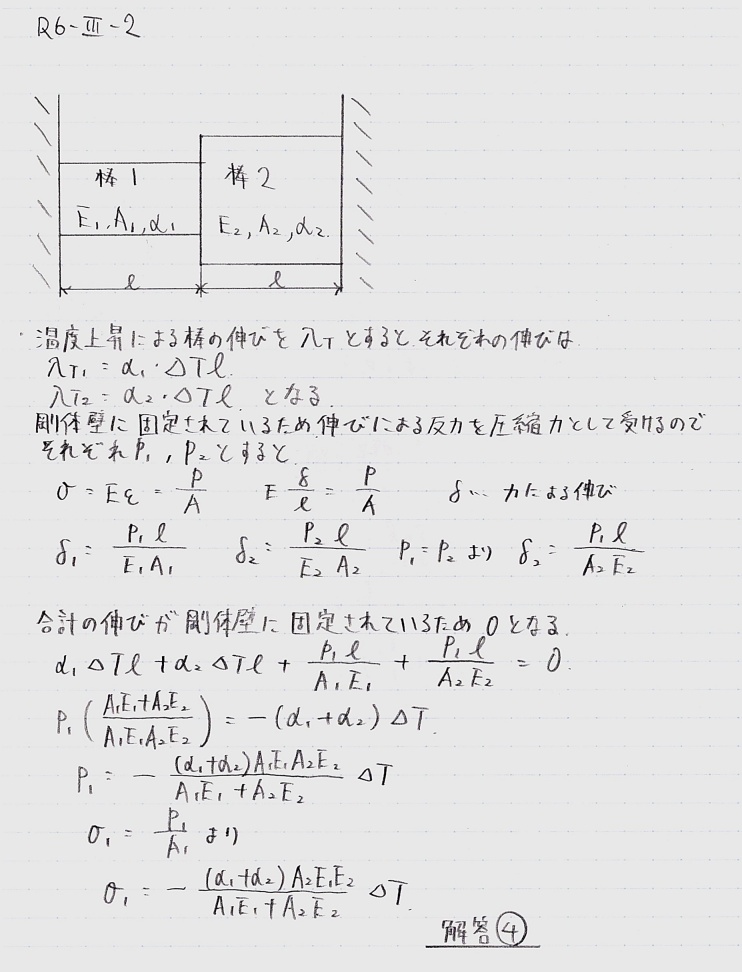 R6-Ⅲ-2
棒1 棒2
E₁, A₁, α₁ E₂, A₂, α₂.
l l
・温度上昇による棒の伸びをλTとするとそれぞれの伸びは
λT₁ = α₁・ΔTl.
λT₂ = α₂・ΔTl. となる.
剛体壁に固定されているため伸びによる反力を圧縮力として受けるので
それぞれP₁, P₂とすると
σ = Eε = P/A E δ/l = P/A δ… 力による伸び
δ₁ = P₁l/E₁A₁ δ₂ = P₂l/E₂A₂ P₁ = P₂ より δ₂ = P₁l/A₂E₂
合計の伸びが剛体壁に固定されているため0となる.
α₁ΔTl + α₂ΔTl + P₁l/A₁E₁ + P₁l/A₂E₂ = 0.
P₁(A₁E₁+A₂E₂/A₁E₁A₂E₂) = -(α₁+α₂)ΔT.
P₁ = - (α₁+α₂)A₁E₁A₂E₂/A₁E₁+A₂E₂ ΔT
σ₁ = P₁/A₁ より
σ₁ = - (α₁+α₂)A₂E₁E₂/A₁E₁+A₂E₂ ΔT.
解答④